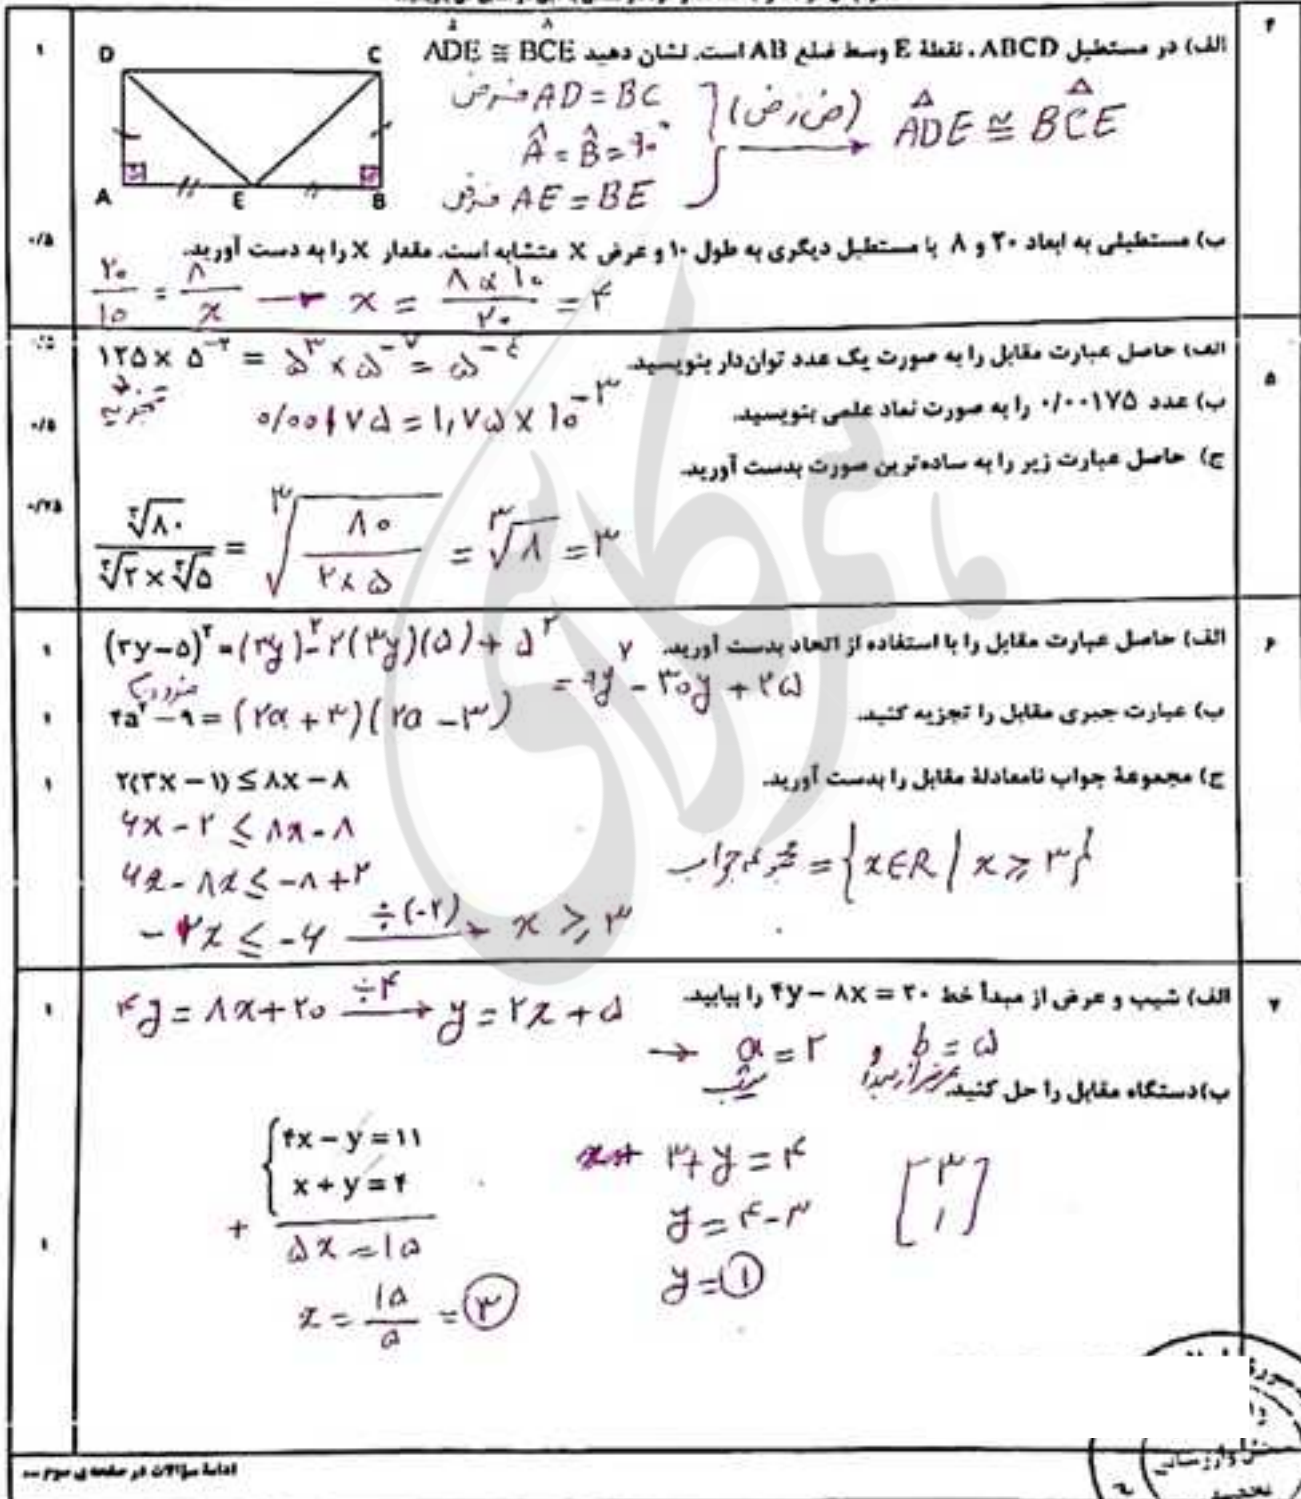 ۴
الف) در مستطیل ABCD ، نقطهٔ E وسط ضلع AB است. نشان دهید ADE ≅ BCE
۱
D C
A E B
فرض AD = BC
Â = B̂ = ۹۰°
فرض AE = BE
(ض ز ض) → ADE ≅ BCE
ب) مستطیلی به ابعاد ۲۰ و ۸ با مستطیل دیگری به طول ۱۰ و عرض X متشابه است. مقدار X را به دست آورید.
۰/۵
۲۰/۱۰ = ۸/x → x = ۸ × ۱۰ / ۲۰ = ۴
۵
الف) حاصل عبارت مقابل را به صورت یک عدد توان‌دار بنویسید.
ب) عدد ۰/۰۰۱۷۵ را به صورت نماد علمی بنویسید.
۰/۵
۰/۰۰۱۷۵ = ۱,۷۵ × ۱۰^-۳
ج) حاصل عبارت زیر را به ساده‌ترین صورت بدست آورید.
۰/۷۵
∛۸۰ / ∛۲ × ∛۵ = ∛(۸۰ / ۲ × ۵) = ∛۸ = ۳
۶
الف) حاصل عبارت مقابل را با استفاده از اتحاد بدست آورید.
۱
(۳y − ۵)^۲ = (۳y)^۲ − ۲(۳y)(۵) + ۵^۲
= ۹y^۲ − ۳۰y + ۲۵
ب) عبارت جبری مقابل را تجزیه کنید.
۱
۴a^۲ − ۹ = (۲a + ۳)(۲a − ۳)
ج) مجموعهٔ جواب نامعادلهٔ مقابل را بدست آورید.
۱
۲(۳x − ۱) ≤ ۸x − ۸
۶x − ۲ ≤ ۸x − ۸
۶x − ۸x ≤ −۸ + ۲
−۲x ≤ −۶ ÷(−۲) → x ≥ ۳
مجموعه جواب = {x∈R | x ≥ ۳}
۷
الف) شیب و عرض از مبدأ خط ۴y − ۸x = ۲۰ را بیابید.
۱
۴y = ۸x + ۲۰ ÷۴ → y = ۲x + ۵
→ a = ۲ و b = ۵
شیب عرض از مبدا
ب) دستگاه مقابل را حل کنید.
۱
۴x − y = ۱۱
x + y = ۴
+
۵x = ۱۵
x = ۱۵/۵ = ۳
۳ + y = ۴
y = ۴ − ۳
y = ۱
[۳ ۱]
ادامهٔ سؤالات در صفحه‌ی سوم ...